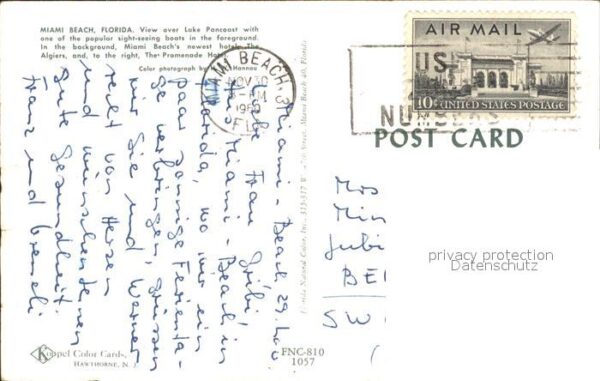 MIAMI BEACH, FLORIDA. View over Lake Pancoast with
one of the popular sight-seeing boats in the foreground.
In the background, Miami Beach's newest hotels The
Algiers, and, to the right, The Promenade
Color photograph by Hannau
MIAMI BEACH
NOV 30
AM
FLA
AIR MAIL
10¢ UNITED STATES POSTAGE
US
NUMBERS
POST CARD
Miami-Beach 29. Nov
Liebe Frau
Aus Miami-Beach in
Florida, wo wir ein
paar sonnige Ferienta-
ge verbringen, grüssen
wir Sie und Werner
von Herzen
und wünschen Ihnen
gute Gesundheit.
Franz und Vreneli
Florida Natural Color, Inc., 315-317 W. Street, Miami Beach 40, Florida
BE
SW
privacy protection
Datenschutz
Koppel Color Cards,
HAWTHORNE, N. J.
FNC-810
1057